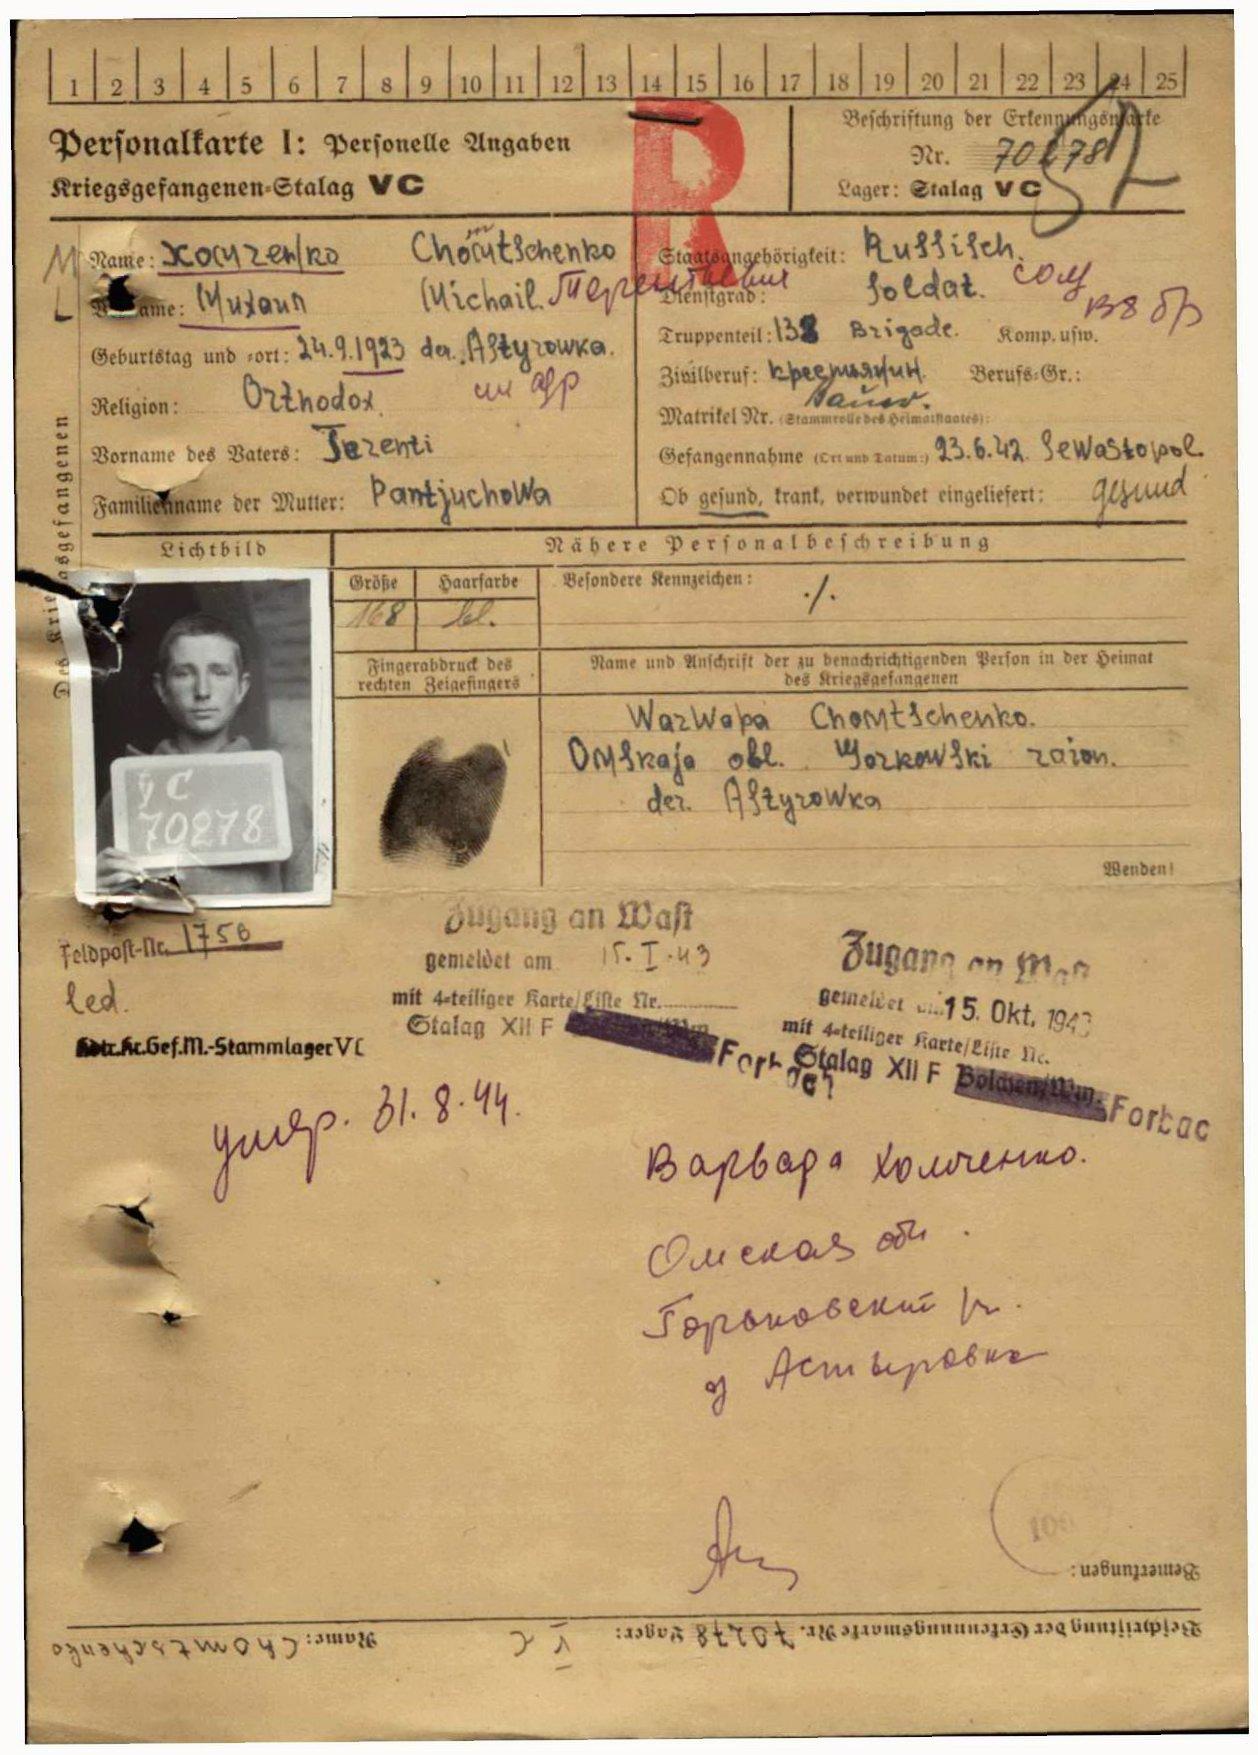 1 2 3 4 5 6 7 8 9 10 11 12 13 14 15 16 17 18 19 20 21 22 23 24 25
Personalkarte I: Personelle Angaben
Kriegsgefangenen-Stalag VC
R
Beschriftung der Erkennungsmarke
Nr. 70278
Lager: Stalag VC
Des Kriegsgefangenen
Name: Хомченко Chomtschenko
Vorname: Михаил Michail. Терентьевич
Geburtstag und -ort: 24.9.1923 der. Astyrowka.
Religion: Orthodox.
Vorname des Vaters: Terenti
Familienname der Mutter: Pantjuchowa
Staatsangehörigkeit: Russisch.
Dienstgrad: Soldat. сол
Truppenteil: 138 Brigade. Komp. usw. 138 бр
Zivilberuf: крестьянин. Berufs-Gr.:
Bauer.
Matrikel Nr. (Stammrolle des Heimatstaates):
Gefangennahme (Ort und Datum:) 23.6.42. Sewastopol.
Ob gesund, krank, verwundet eingeliefert: gesund
Lichtbild
Nähere Personalbeschreibung
Größe Haarfarbe Besondere Kennzeichen: ./.
168 bl.
Fingerabdruck des
rechten Zeigefingers
Name und Anschrift der zu benachrichtigenden Person in der Heimat
des Kriegsgefangenen
V C
70278
Warwara Chomtschenko.
Omskaja obl. Gorkowski raion.
der. Astyrowka
Wenden!
Feldpost-Nr. 1756
led.
Kdtr.Kr.Gef.M.-Stammlager V C
Zugang an Wast
gemeldet am 15. I. 43
mit 4-teiliger Karte/Liste Nr.
Stalag XII F
Zugang an Wast
gemeldet am 15. Okt. 1943
mit 4-teiliger Karte/Liste Nr.
Stalag XII F Bolchen/Wm. Forbac
умер. 31.8.44.
Варвара Хомченко.
Омская обл.
Горьковский р.
д Астыровка
100
Bemerkungen:
Beschriftung der Erkennungsmarke Nr. 70278 Lager: V C Name: Chomtschenko